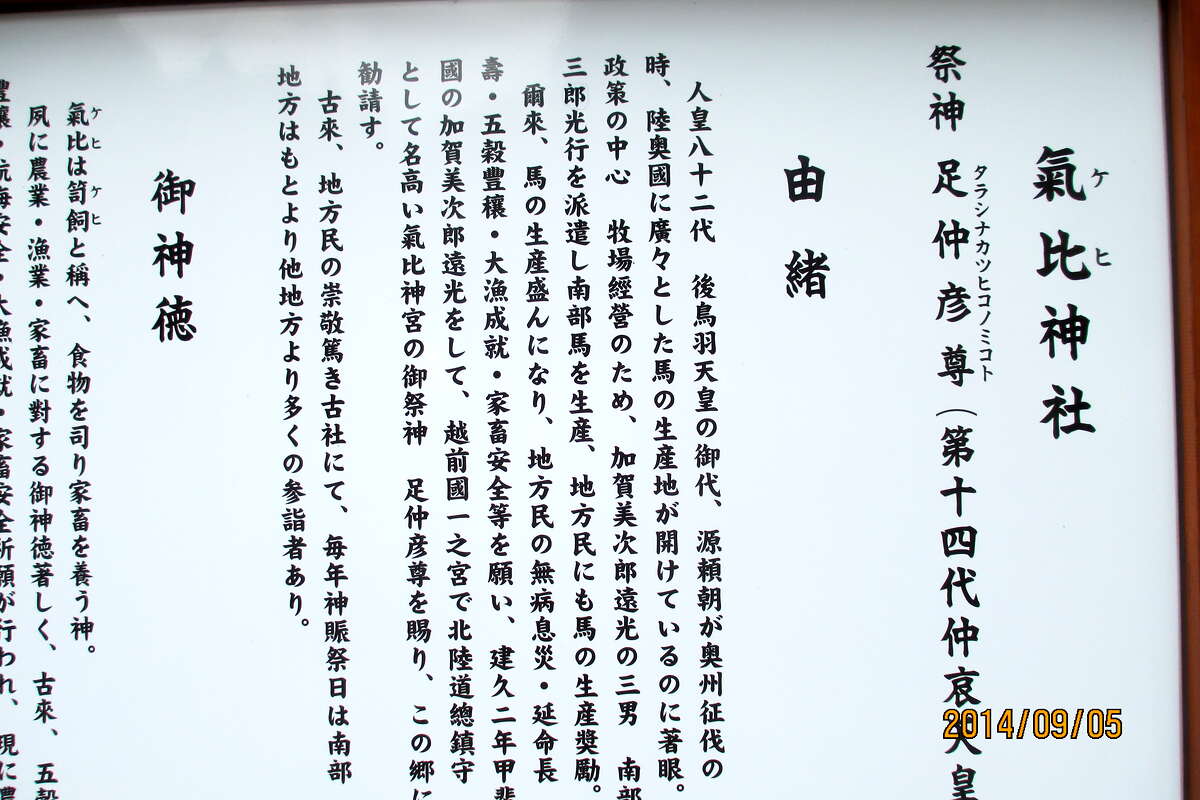 氣比神社
ケヒ
祭神 足仲彦尊（第十四代仲哀天皇
タラシナカツヒコノミコト
由緒
人皇八十二代 後鳥羽天皇の御代、源頼朝が奥州征伐の
時、陸奥國に廣々とした馬の生産地が開けているのに著眼。
政策の中心 牧場經營のため、加賀美次郎遠光の三男 南部
三郎光行を派遣し南部馬を生産、地方民にも馬の生産奬勵。
爾來、馬の生産盛んになり、地方民の無病息災・延命長
壽・五穀豐穰・大漁成就・家畜安全等を願い、建久二年甲
國の加賀美次郎遠光をして、越前國一之宮で北陸道總鎮守
として名高い氣比神宮の御祭神 足仲彦尊を賜り、この郷に
勧請す。
古來、地方民の崇敬篤き古社にて、毎年神賑祭日は南部
地方はもとより他地方より多くの参詣者あり。
御神徳
氣比は笥飼と稱へ、食物を司り家畜を養う神。
ケヒ ケヒ
夙に農業・漁業・家畜に對する御神徳著しく、古來、五穀
豐穰・航海安全・大漁成就・家畜安全祈願が行われ、現に
2014/09/05